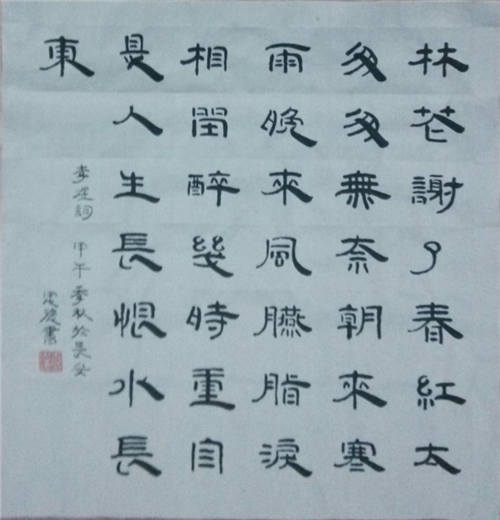 林花謝了春紅太
匆匆無奈朝來寒
雨晚來風臙脂淚
相留醉幾時重自
是人生長恨水長
東
李煜詞 甲午季秋於長安
書